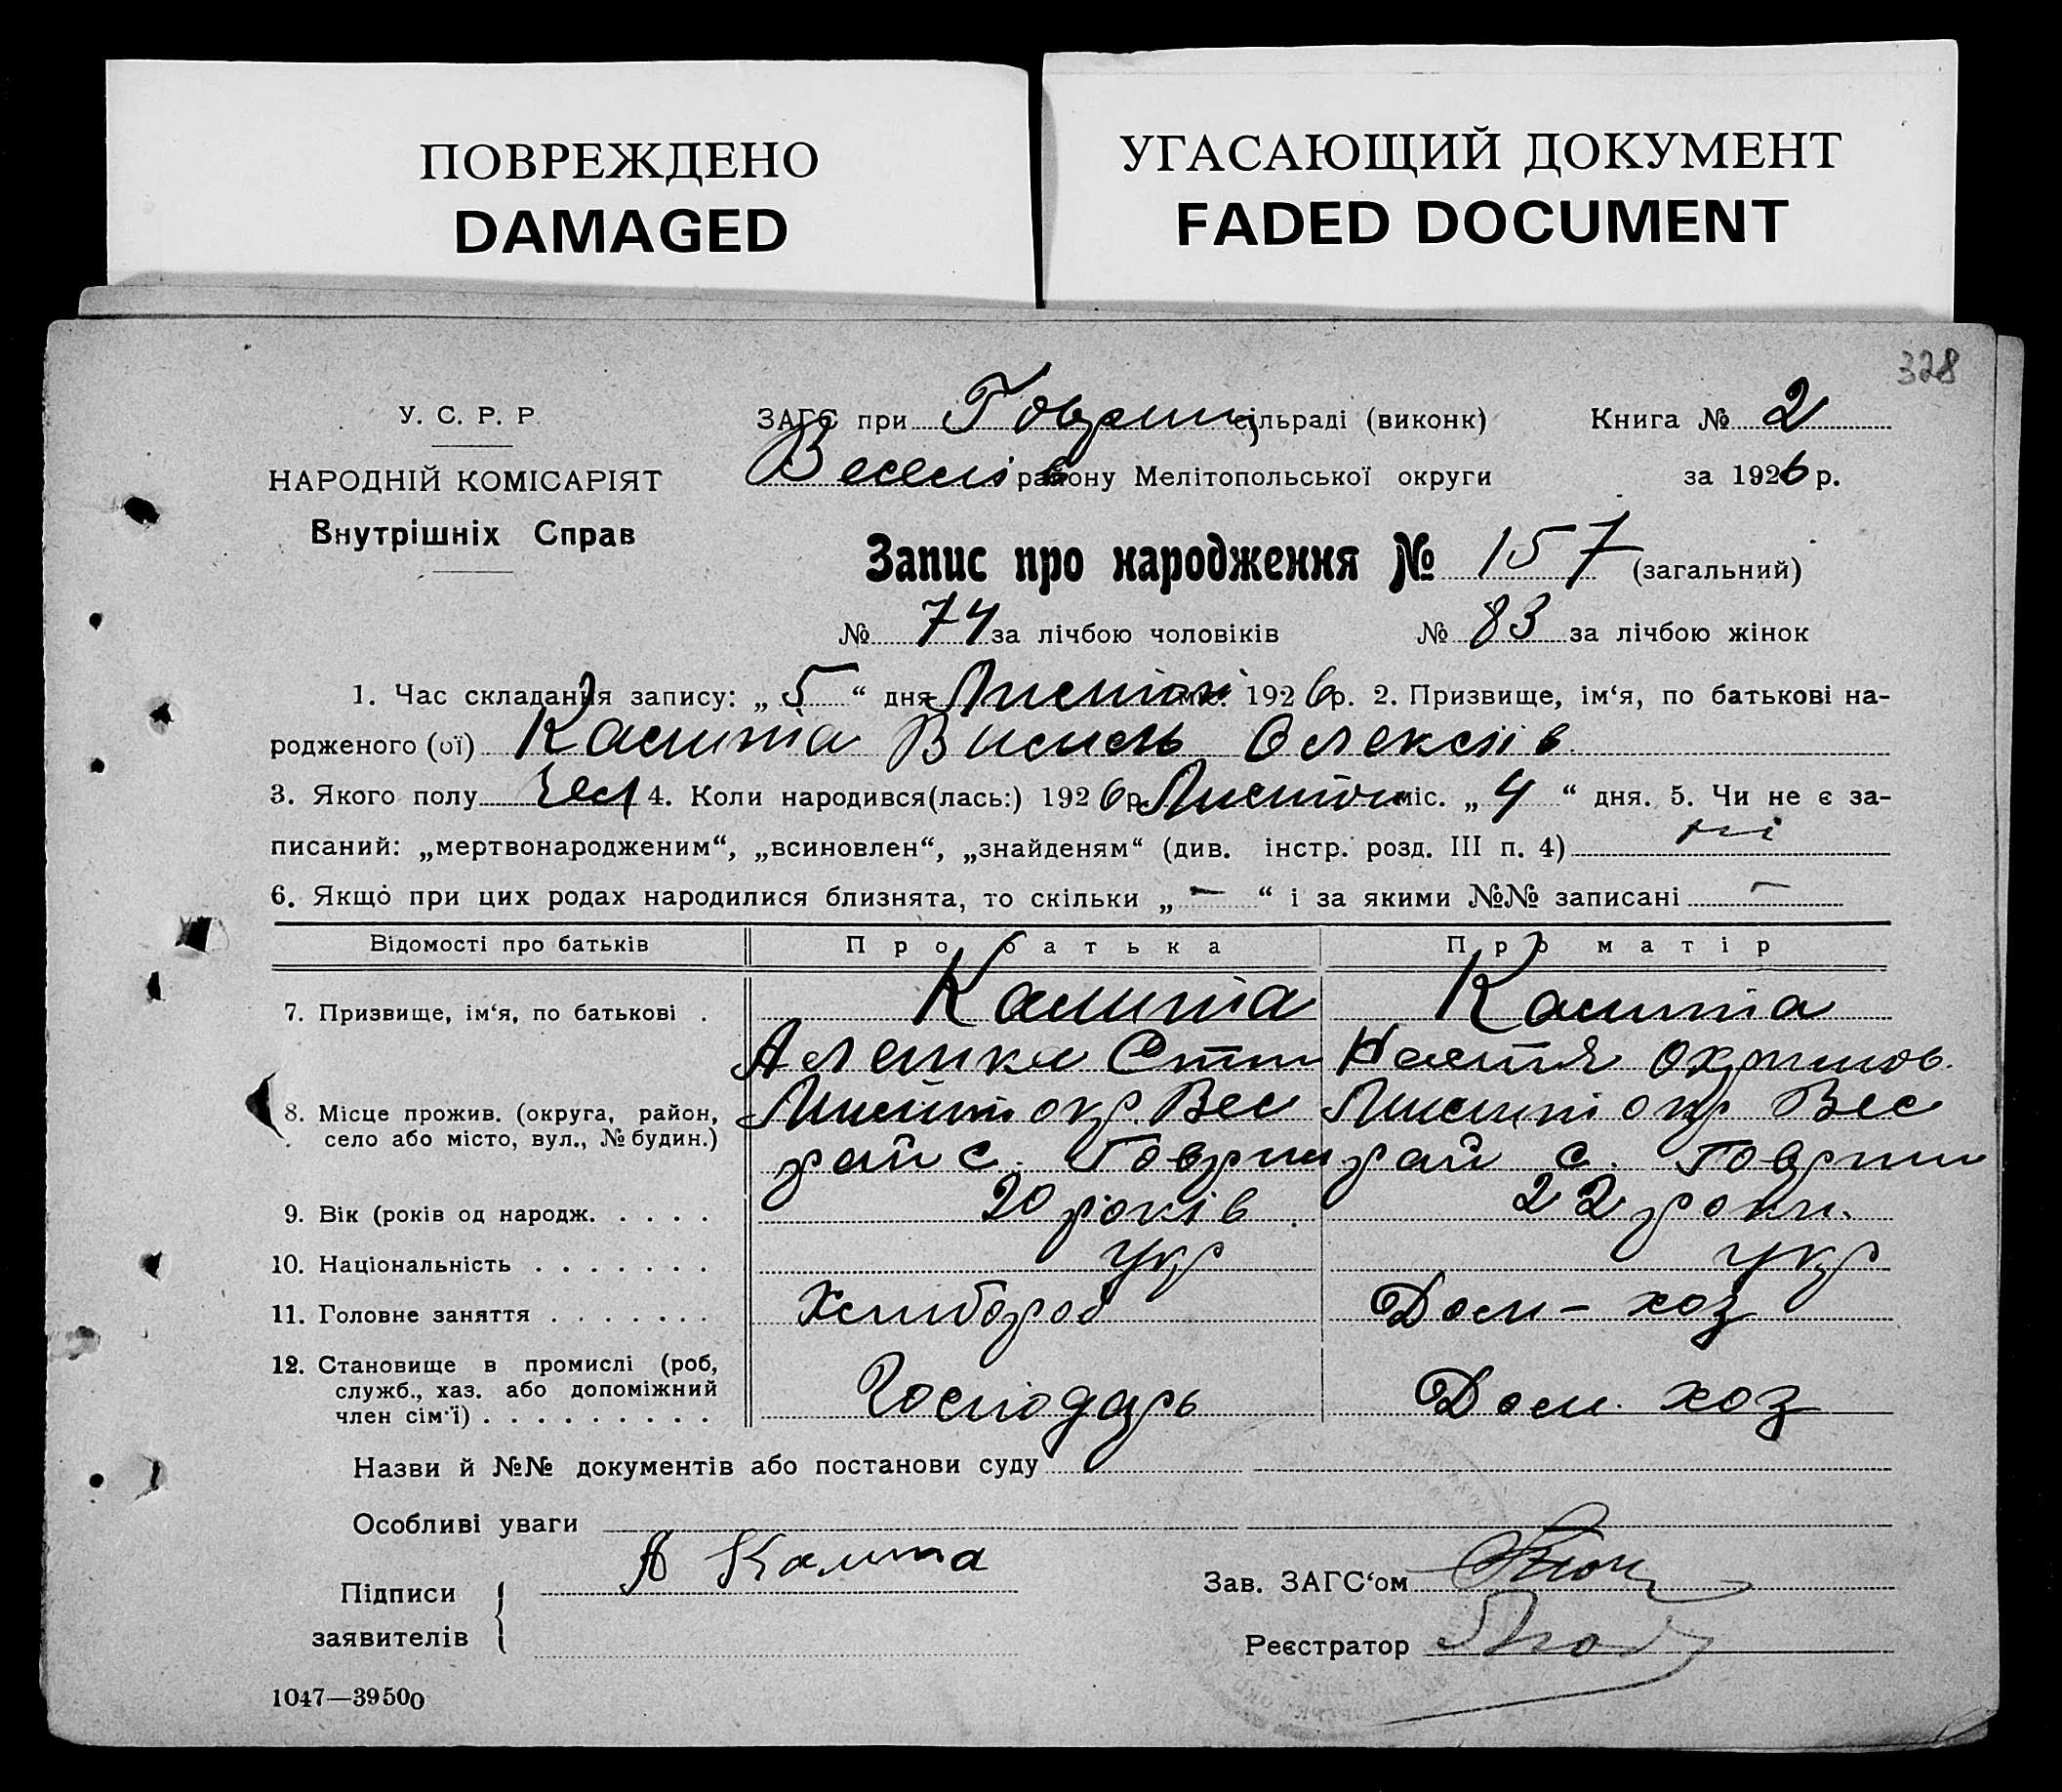 ПОВРЕЖДЕНО
DAMAGED
УГАСАЮЩИЙ ДОКУМЕНТ
FADED DOCUMENT
328
У. С. Р. Р
НАРОДНІЙ КОМІСАРІЯТ
Внутрішніх Справ
ЗАГС при Гаврил сільраді (виконк)
Веселів району Мелітопольської округи
Книга № 2
за 1926 р.
Запис про народження № 157 (загальний)
№ 74 за лічбою чоловіків № 83 за лічбою жінок
1. Час складання запису: „ 5 “ дня міс. 1926 р. 2. Призвище, ім‘я, по батькові на-
родженого (ої) Калита Василь Олексіїв
3. Якого полу Чол 4. Коли народився(лась:) 1926 р. міс. „ 4 “ дня. 5. Чи не є за-
писаний: „мертвонародженим“, „всиновлен“, „знайденям“ (див. інстр. розд. III п. 4) ні
6. Якщо при цих родах народилися близнята, то скільки „ — “ і за якими №№ записані —
Відомості про батьків Про батька Про матір
7. Призвище, ім‘я, по батькові . Калита Калита
Настя
8. Місце прожив. (округа, район, окр. Вес окр Вес
село або місто, вул., № будин.) рай с. рай с.
9. Вік (років од народж. . . . . 20 років 22 роки.
10. Національність . . . . . . . укр укр
11. Головне заняття . . . . . . . Хлибороб Дом-хоз
12. Становище в промислі (роб,
служб., хаз. або допоміжний
член сім‘ї) . . . . . . . . . Господарь Дом. хоз
Назви й №№ документів або постанови суду
Особливі уваги
Підписи
заявителів
А Калита
Зав. ЗАГС‘ом
Реєстратор
1047—39500